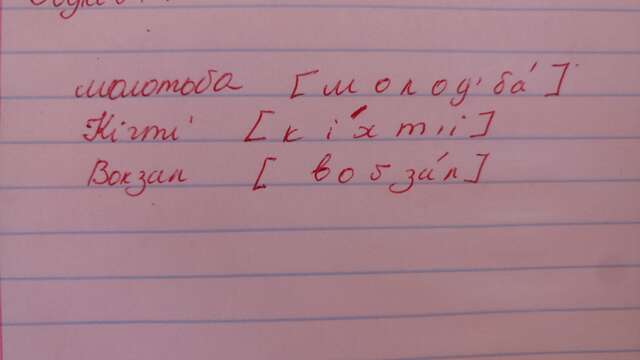 молотьба [молод'ба́]
Кігті [кі́хтіі]
Вокзал [воґза́л]